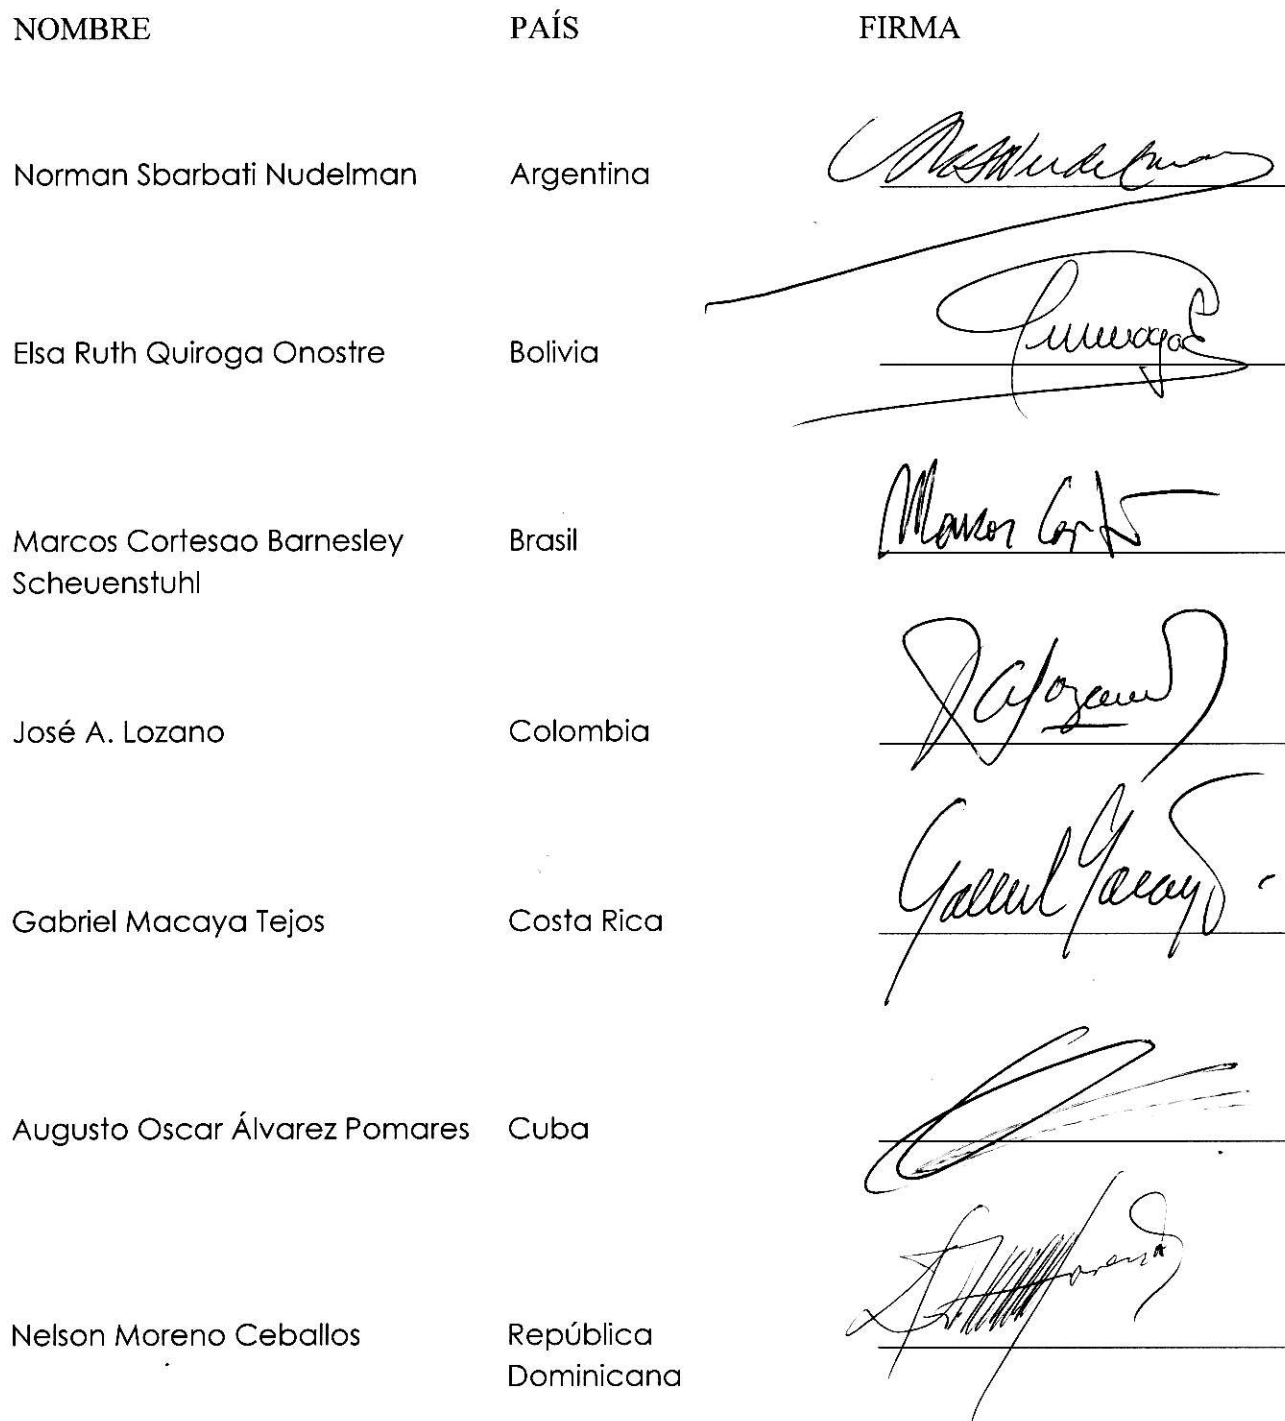 NOMBRE PAÍS FIRMA
Norman Sbarbati Nudelman Argentina
Elsa Ruth Quiroga Onostre Bolivia
Marcos Cortesao Barnesley Brasil
Scheuenstuhl
José A. Lozano Colombia
Gabriel Macaya Tejos Costa Rica
Augusto Oscar Álvarez Pomares Cuba
Nelson Moreno Ceballos República
Dominicana